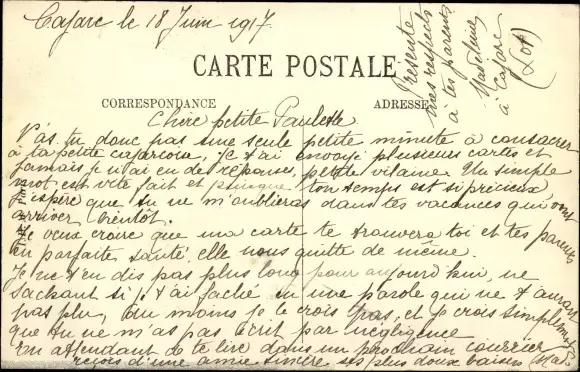 Cajarc le 18 Juin 1917
CARTE POSTALE
CORRESPONDANCE
ADRESSE
Chère petite Paulette
N'as tu donc pas une seule petite minute à consacrer
à ta petite cajarcoise, Je t'ai envoyé plusieurs cartes et
jamais je n'ai eu de réponses, petite vilaine. Un simple
mot est vite fait et puisque ton temps est si précieux
j'espère que tu ne m'oublieras dans tes vacances qui vont
arriver bientôt.
Je veux croire que ma carte te trouvera toi et tes parents
en parfaite santé, elle nous quitte de même.
Je ne t'en dis pas plus long pour aujourd'hui, ne
sachant si je t'ai faché en une parole qui ne t'aurait
pas plu, du moins je le crois pas, et je crois simplement
que tu ne m'as pas écrit par négligence
En attendant de te lire dans un prochain courrier
reçois d'une amie sincère ses plus doux baisers Mad.
Présente
mes respects
à tes parents
Madeleine
à Cajarc
(Lot)